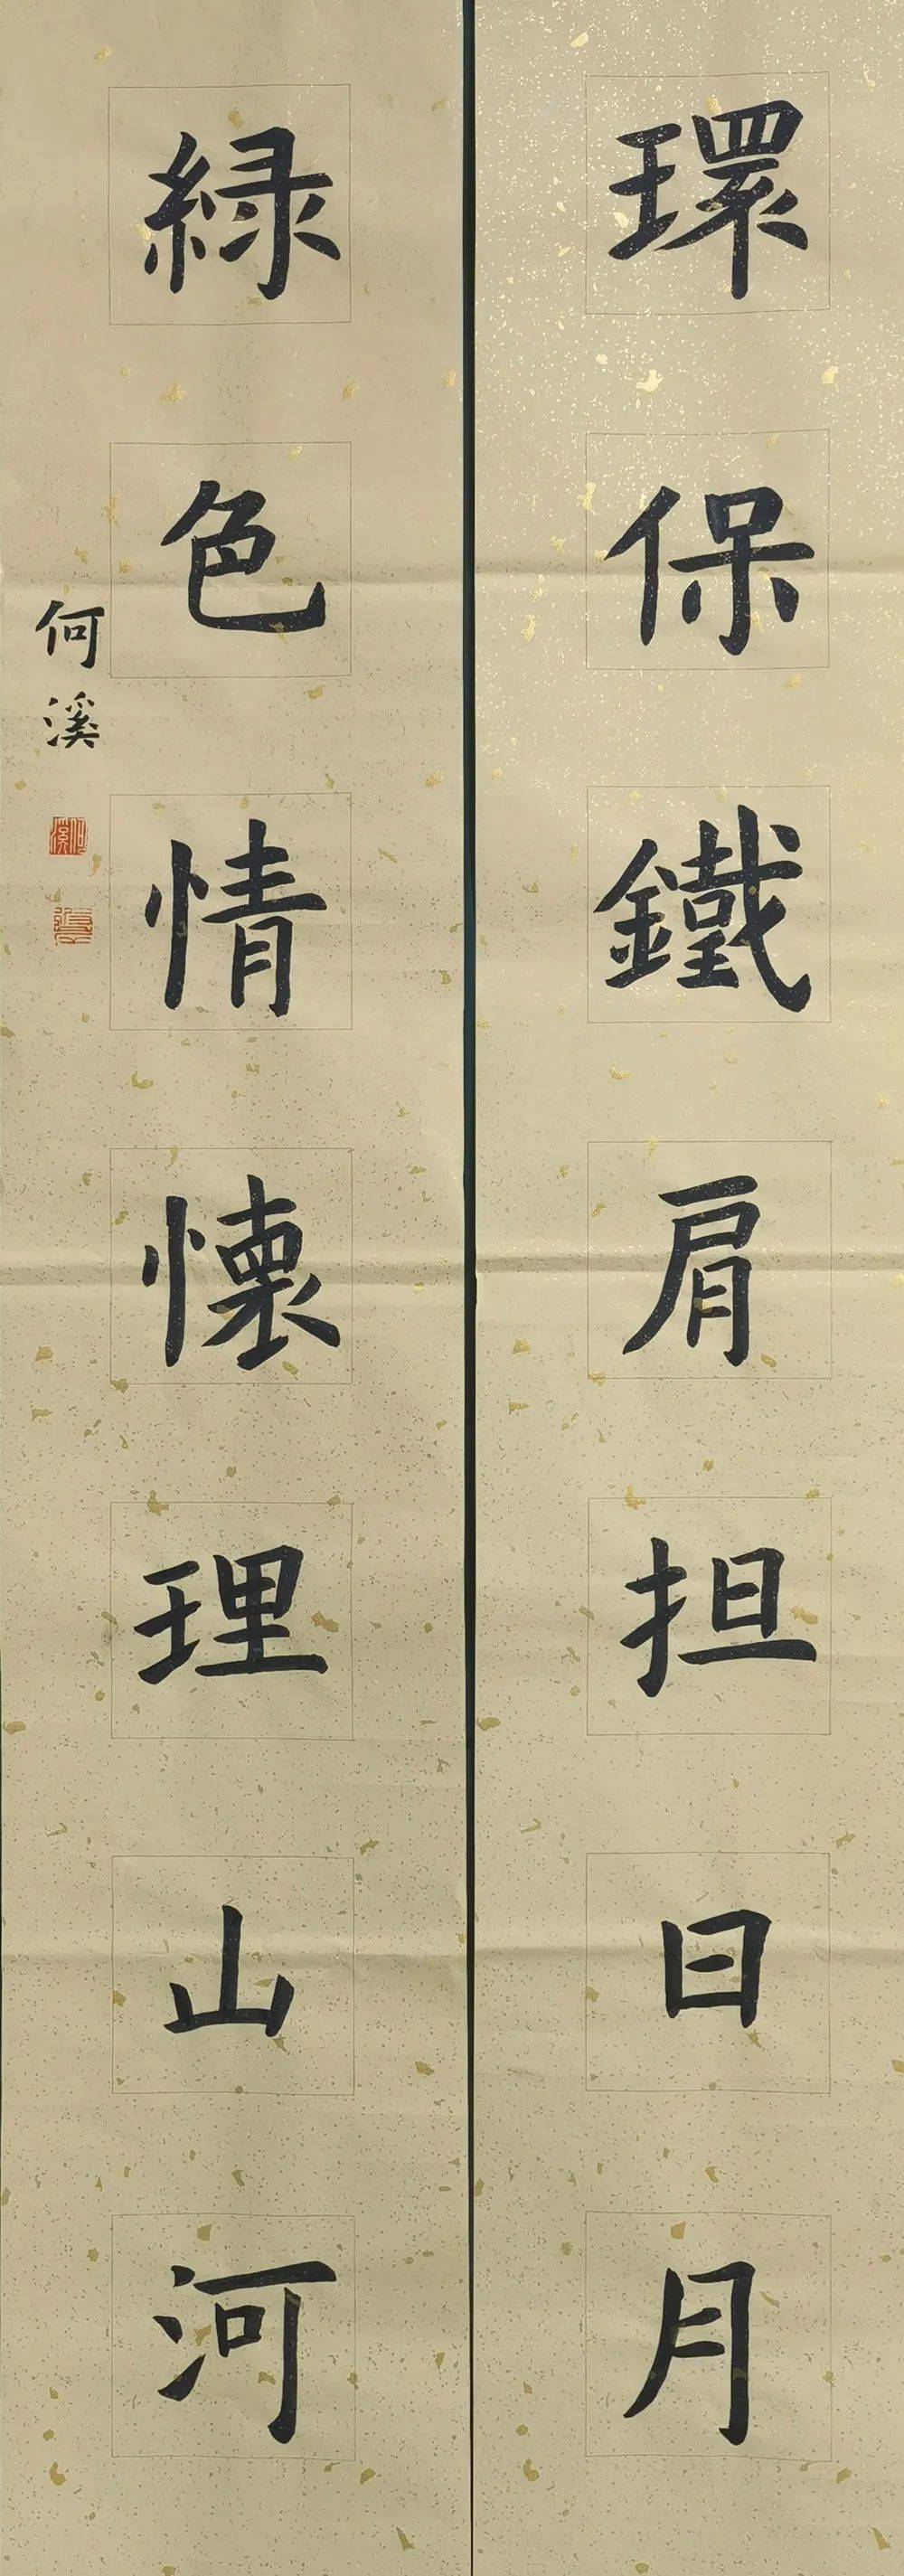 環保鐵肩担日月
緑色情懷理山河
何溪